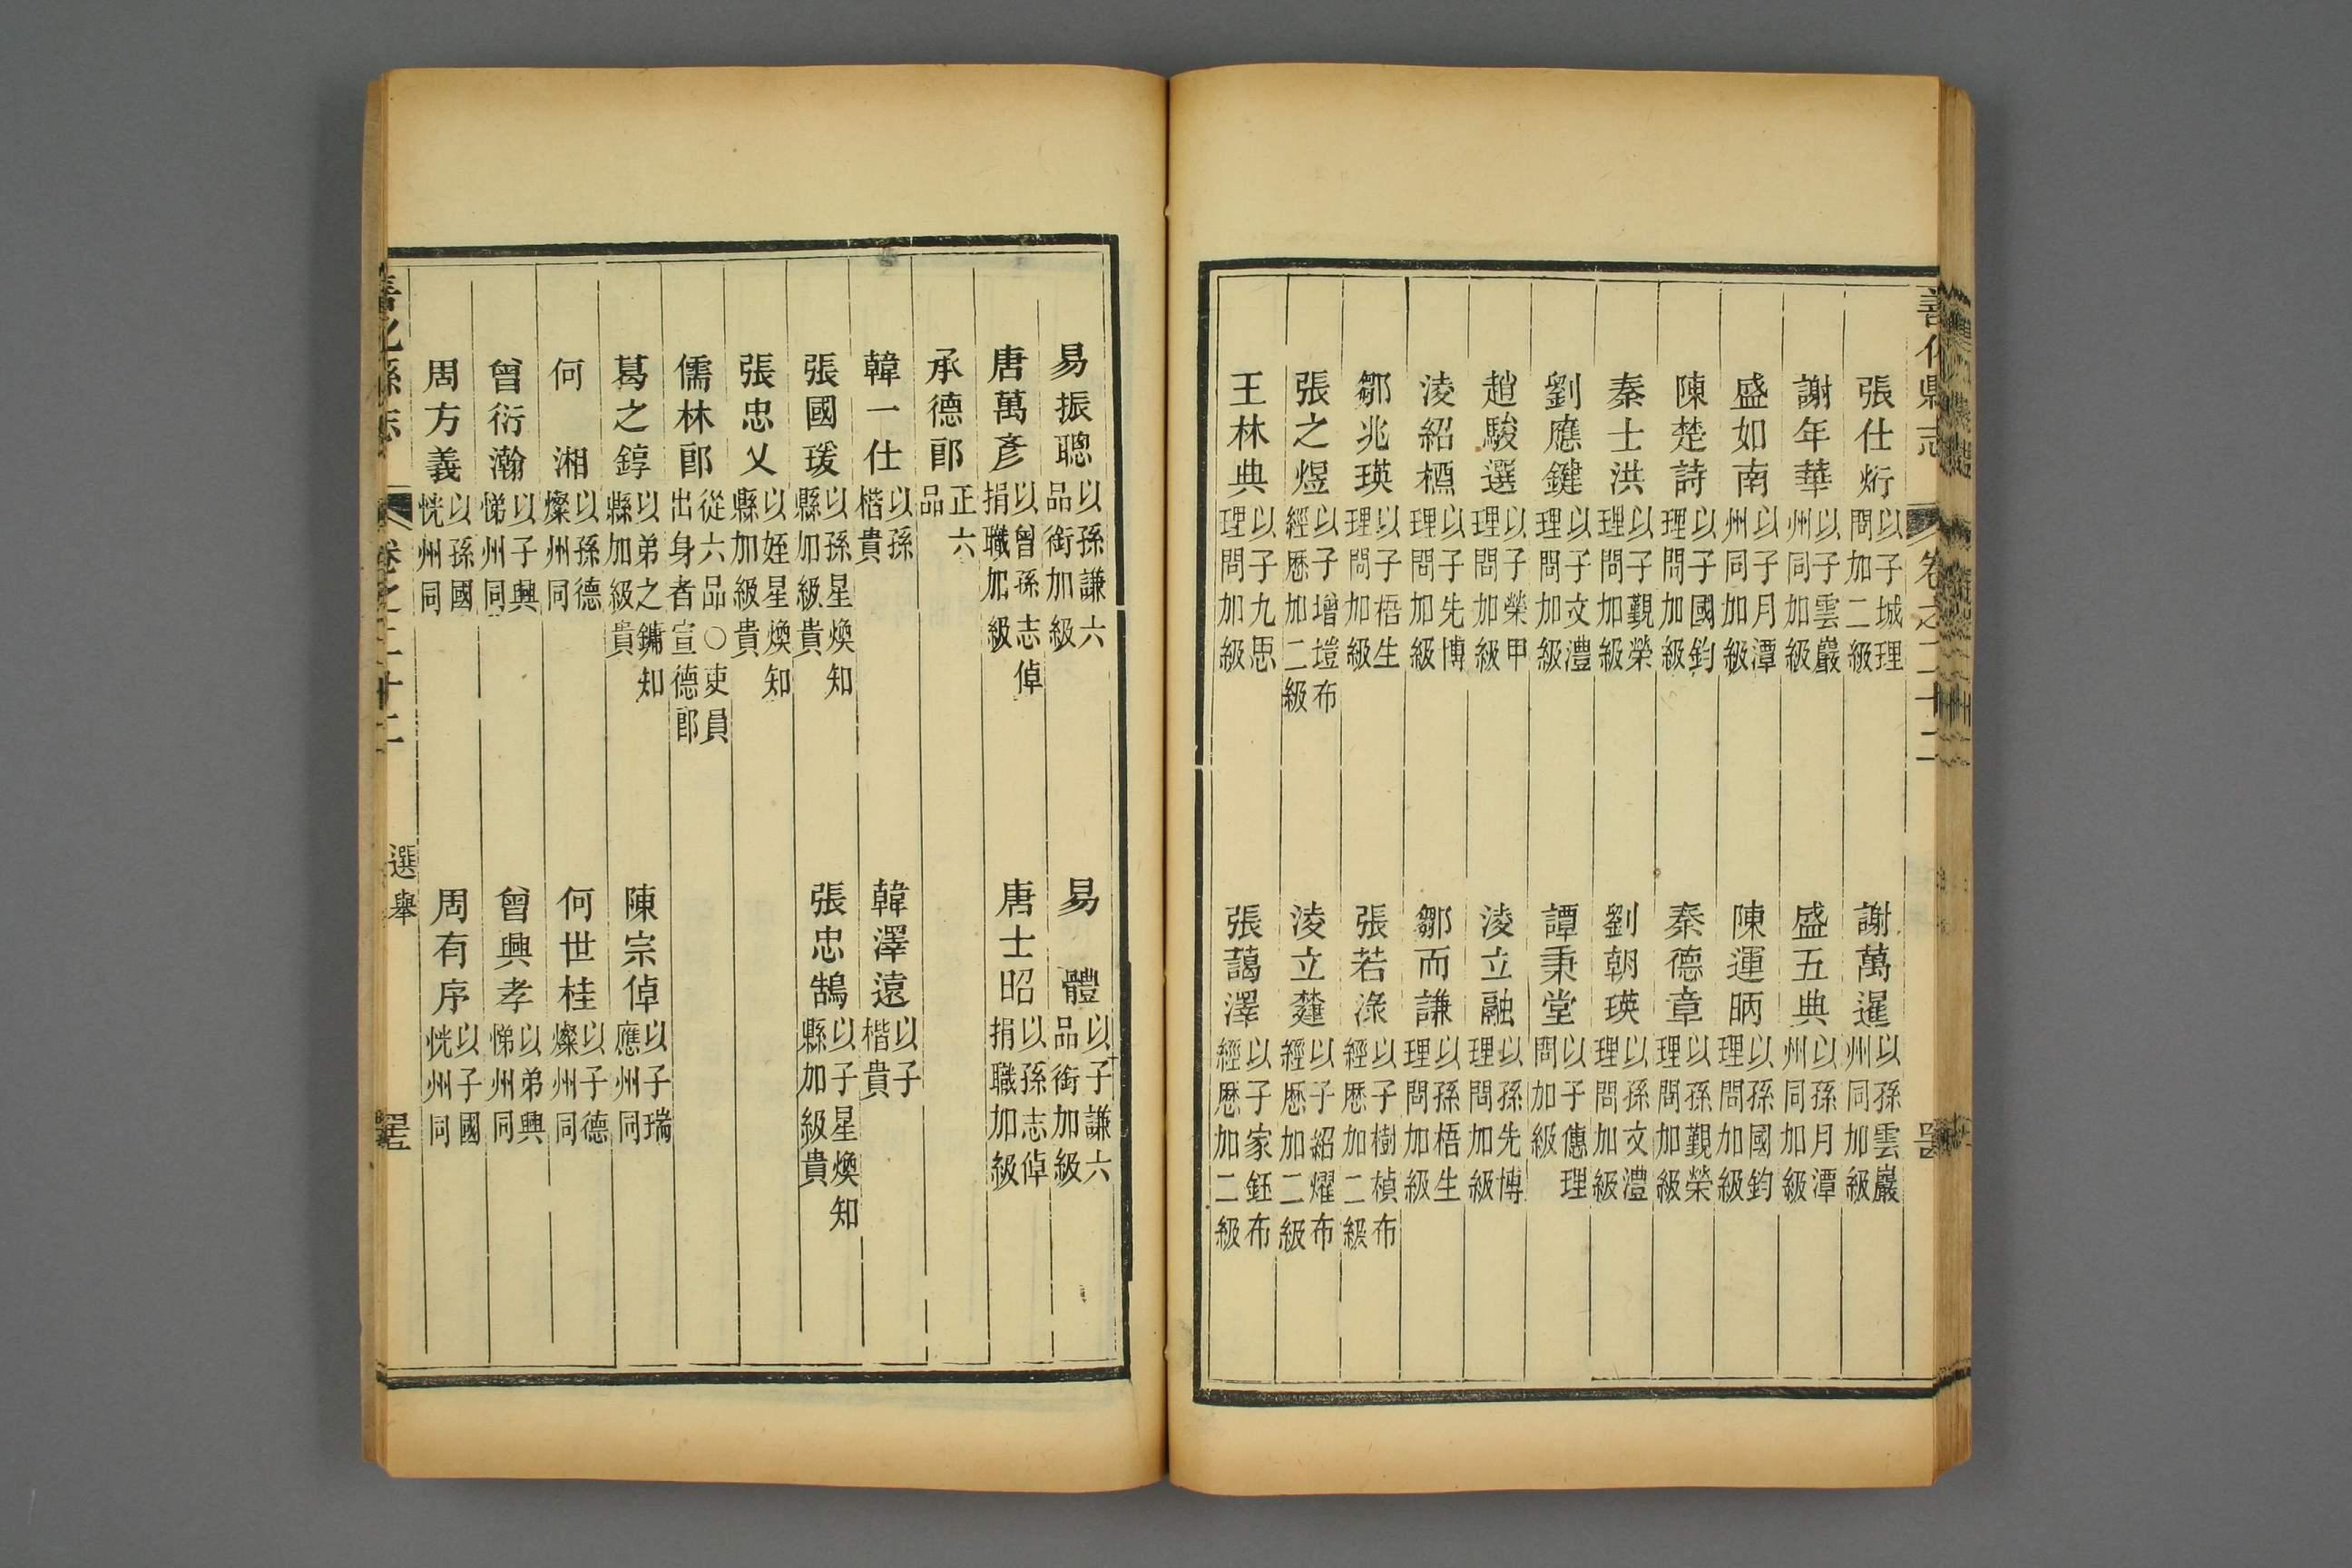 善化縣志 卷之二十二
張仕㷚以子城理問加二級 謝萬暹以孫雲巖州同加級
謝年華以子雲巖州同加級 盛五典以孫月潭州同加級
盛如南以子月潭州同加級 陳運昞以孫國鈞理問加級
陳楚詩以子國鈞理問加級 秦德章以孫覲榮理問加級
秦士洪以子覲榮理問加級 劉朝瑛以孫文澧理問加級
劉應鍵以子文澧理問加級 譚秉堂以子僡理問加級
趙駿選以子榮甲理問加級 淩立融以孫先博理問加級
淩紹標以子先博理問加級 鄒而謙以孫梧生理問加級
鄒兆瑛以子梧生理問加級 張若淥以子樹楨布經厯加二級
張之煜以子增塏布經厯加二級 淩立薘以子紹燿布經厯加二級
王林典以子九思理問加級 張藹澤以子家鈺布經厯加二級
易振聰以孫謙六品銜加級 易體以子謙六品銜加級
唐萬彥以曾孫志倬捐職加級 唐士昭以孫志倬捐職加級
承德郎正六品
韓一仕以孫楷貴 韓澤遠以子楷貴
張國瑗以孫星煥知縣加級貴 張忠鵠以子星煥知縣加級貴
張忠乂以姪星煥知縣加級貴
儒林郎從六品○吏員出身者宣德郎
葛之錞以弟之鏞知縣加級貴 陳宗倬以子瑞應州同
何湘以孫德燦州同 何世桂以子德燦州同
曾衍瀚以子興悌州同 曾興孝以弟興悌州同
周方義以孫國恍州同 周有序以子國恍州同
善化縣志 卷之二十二 選舉